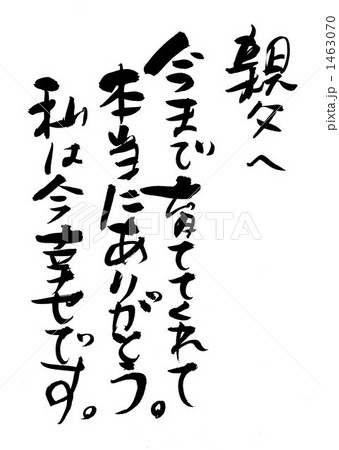 親父へ
今まで育ててくれて
本当にありがとう。
私は今幸せです。
PIXTA
pixta.jp - 1463070